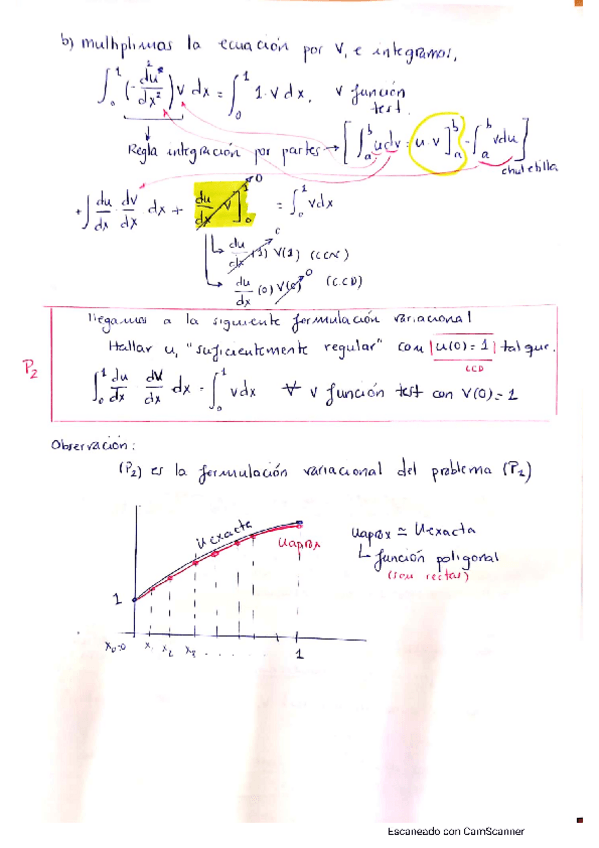 b) multiplicamos la ecuación por V, e integramos,
∫₀¹ (-d²u/dx²) v dx = ∫₀¹ 1·v dx, v función test.
Regla integración por partes → [∫ₐᵇ u dv = u v]ₐᵇ - ∫ₐᵇ v du]
chuletilla
+∫ du/dx dv/dx dx + du/dx v]₀¹ = ∫₀¹ v dx
0
du/dx (1) V(1) (CCN)
du/dx (0) V(0) 0 (CCD)
llegamos a la siguiente formulación variacional
Hallar u, "suficientemente regular" con u(0)=1 tal que.
CCD
P₂
∫₀¹ du/dx dv/dx dx = ∫₀¹ v dx ∀ v función test con V(0)=1
Observación:
(P₂) es la formulación variacional del problema (P₂)
u exacta
uaprox
uaprox ≃ uexacta
↳ función poligonal
(son rectas)
1
x₀=0 x₁ x₂ x₃ . . . . . . 1
Escaneado con CamScanner